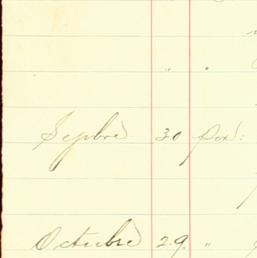 " "
Sepbre 30
Octubre 29 "